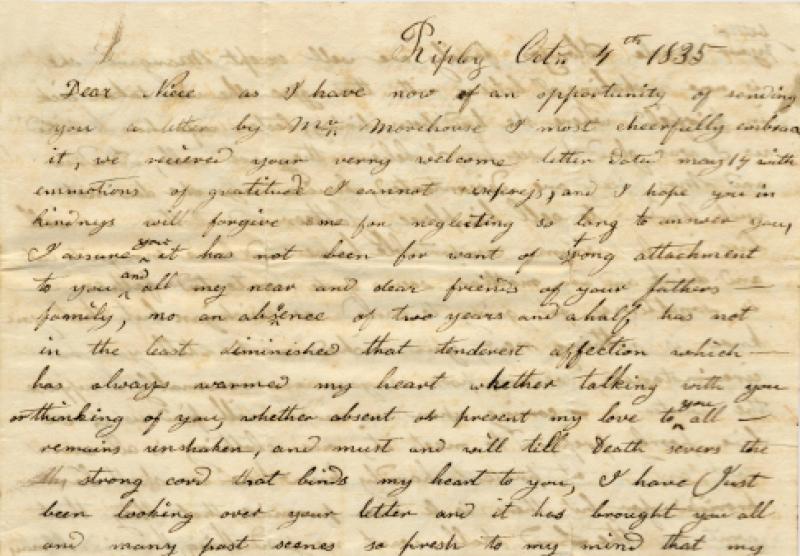 Ripley Octr 4th 1835
Dear Niece as I have now of an opportunity of sending
you a letter by Mr. Morehouse I most cheerfully embrace
it, we recieved your verry welcome letter dated may 14 with
emmotions of gratitude I cannot express, and I hope you in
kindness will forgive me for neglecting so long to answer you,
I assure you it has not been for want of strong attachment
to you and all my near and dear friends of your fathers —
family, no an absence of two years and a half has not
in the least diminished that tenderest affection which —
has always warmed my heart whether talking with you
or thinking of you, whether absent or present my love to you all —
remains unshaken, and must and will till Death severs the
strong cord that binds my heart to you, I have Just
been looking over your letter and it has brought you all
and many past scenes so fresh to my mind that my